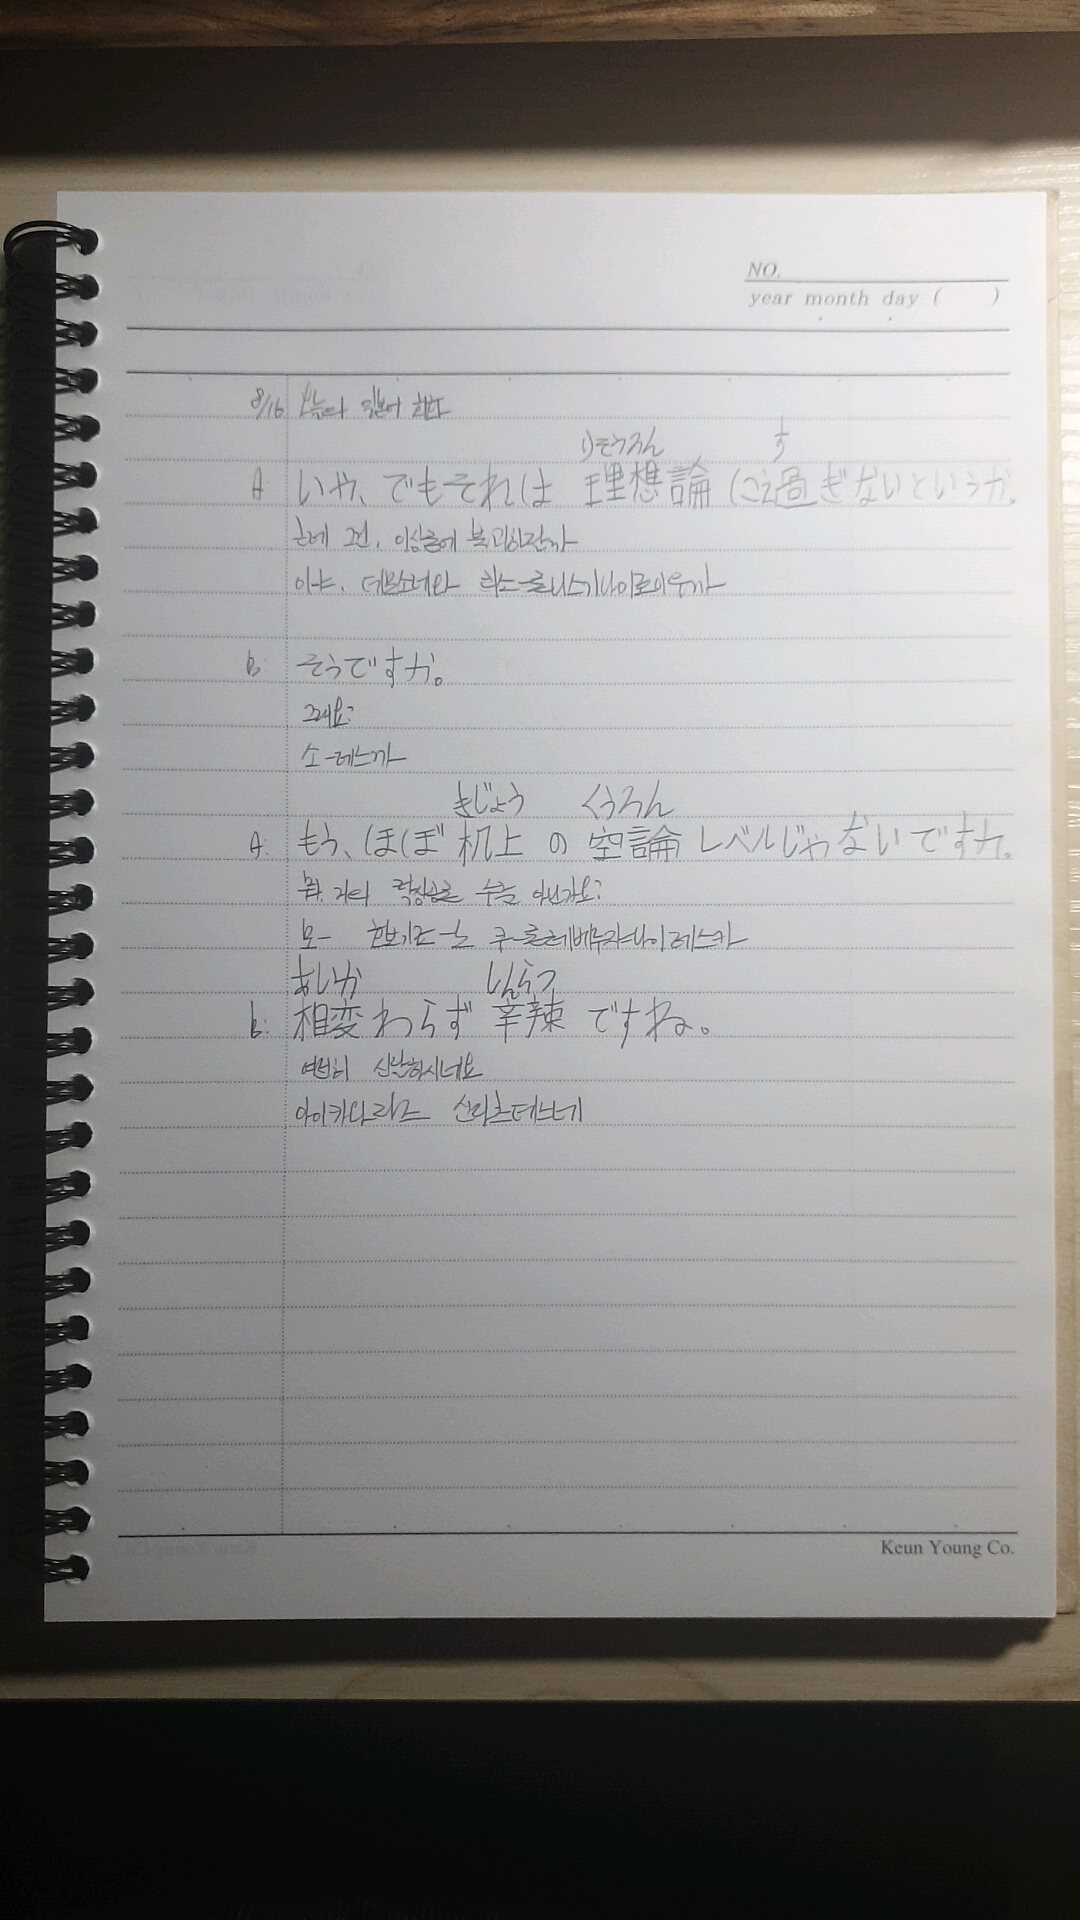 NO.
year month day ( )
8/16 오늘의 일본어 회화
りそうろん す
A いや、でもそれは 理想論に過ぎないというか。
근데 그건, 이상론에 불과하달까
이야, 데모소레와 리소-론니스기나이토이우까
B そうですか。
그래요?
소-데스까
きじょう くうろん
A. もう、ほぼ 机上 の 空論 レベルじゃないですか。
뭐, 거의 탁상공론 수준 아닌가요?
모- 호보키죠-노 쿠-론레베루쟈나이데스카
あいか しんらつ
B: 相変わらず 辛辣 ですね。
여전히 신랄하시네요
아이카와라즈 신라츠데스네
Keun Young Co.